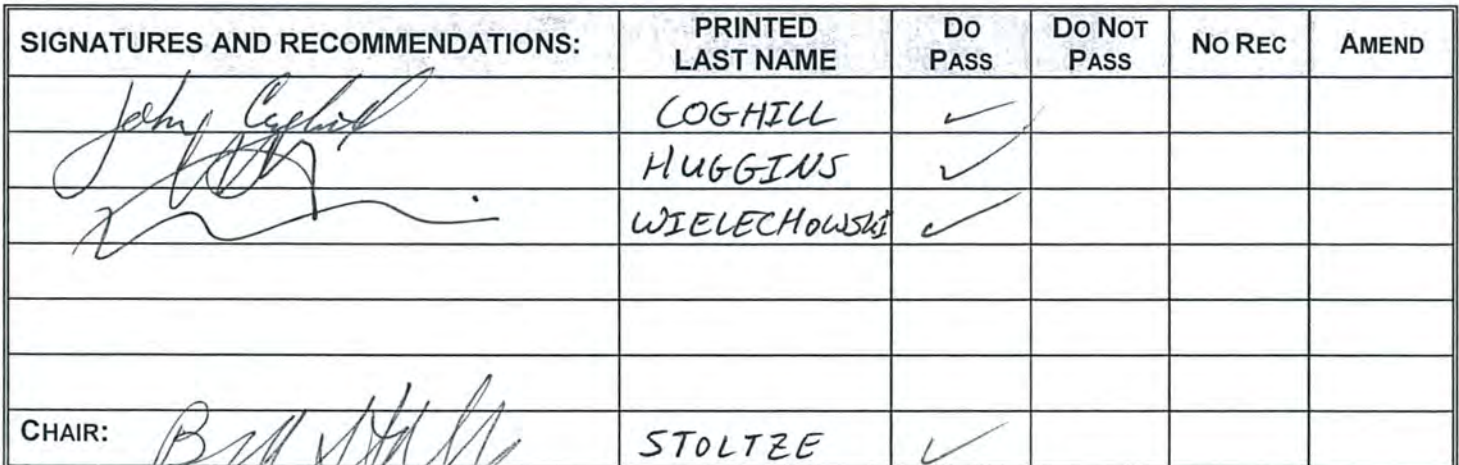 SIGNATURES AND RECOMMENDATIONS: PRINTED LAST NAME DO PASS DO NOT PASS NO REC AMEND
John Coghill COGHILL ✓
HUGGINS ✓
WIELECHOWSKI ✓
CHAIR: Bill Stoltze STOLTZE ✓